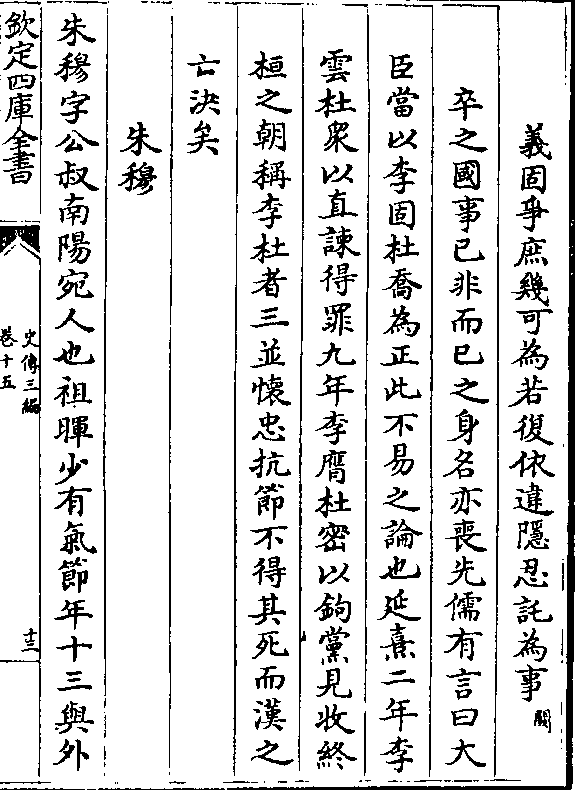 義固爭庶幾可為若復依違隱忍託為事闕
卒之國事已非而已之身名亦喪先儒有言曰大
臣當以李固杜喬為正此不易之論也延熹二年李
雲杜衆以直諫得罪九年李膺杜密以鉤黨見收終
桓之朝稱李杜者三並懷忠抗節不得其死而漢之
亡決矣
朱穆
朱穆字公叔南陽宛人也祖暉少有氣節年十三與外
欽定四庫全書
史傳三編
卷十五
十三